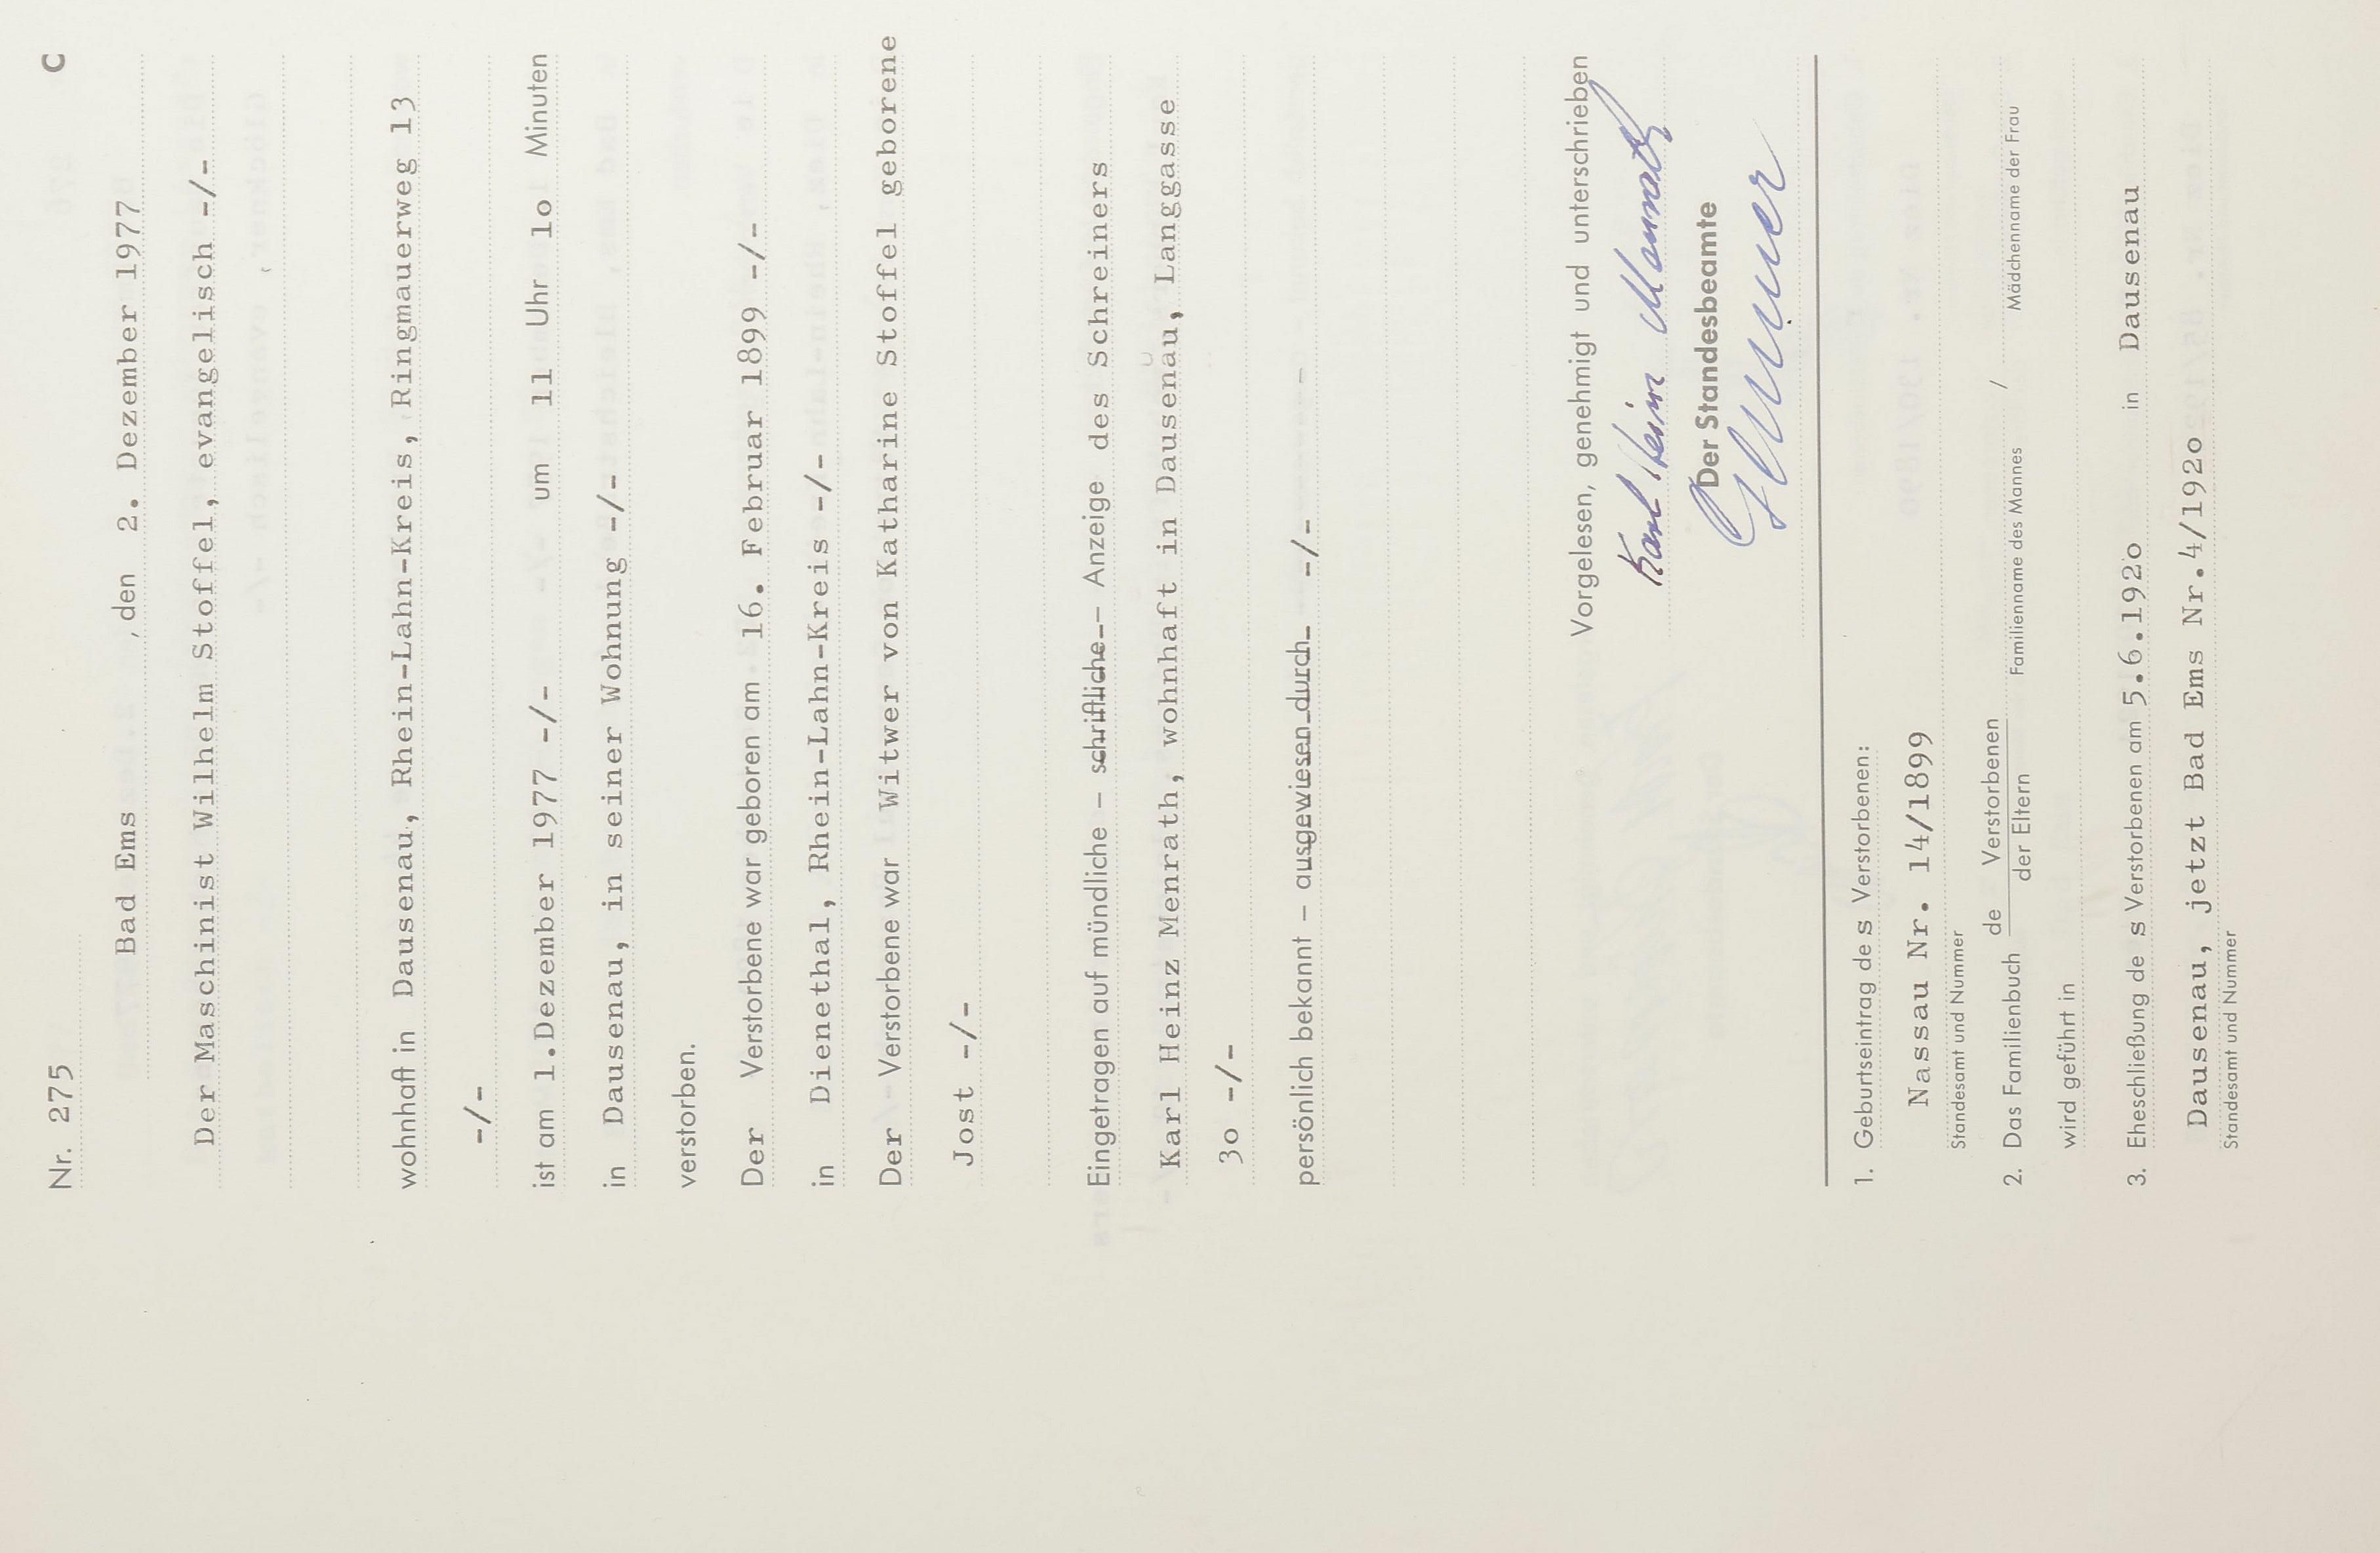 Nr. 275 C
Bad Ems , den 2. Dezember 1977
Der Maschinist Wilhelm Stoffel, evangelisch -/-
wohnhaft in Dausenau, Rhein-Lahn-Kreis, Ringmauerweg 13
-/-
ist am 1.Dezember 1977 -/- um 11 Uhr 1o Minuten
in Dausenau, in seiner Wohnung -/-
verstorben.
Der Verstorbene war geboren am 16. Februar 1899 -/-
in Dienethal, Rhein-Lahn-Kreis -/-
Der Verstorbene war Witwer von Katharine Stoffel geborene
Jost -/-
Eingetragen auf mündliche – schriftliche – Anzeige des Schreiners
Karl Heinz Menrath, wohnhaft in Dausenau, Langgasse
3o -/-
persönlich bekannt – ausgewiesen durch -/-
Vorgelesen, genehmigt und unterschrieben
Karl Heinz Menrath
Der Standesbeamte
1. Geburtseintrag des Verstorbenen:
Nassau Nr. 14/1899
Standesamt und Nummer
2. Das Familienbuch de Verstorbenen / der Eltern Familienname des Mannes / Mädchenname der Frau
wird geführt in
3. Eheschließung des Verstorbenen am 5.6.192o in Dausenau
Dausenau, jetzt Bad Ems Nr.4/192o
Standesamt und Nummer